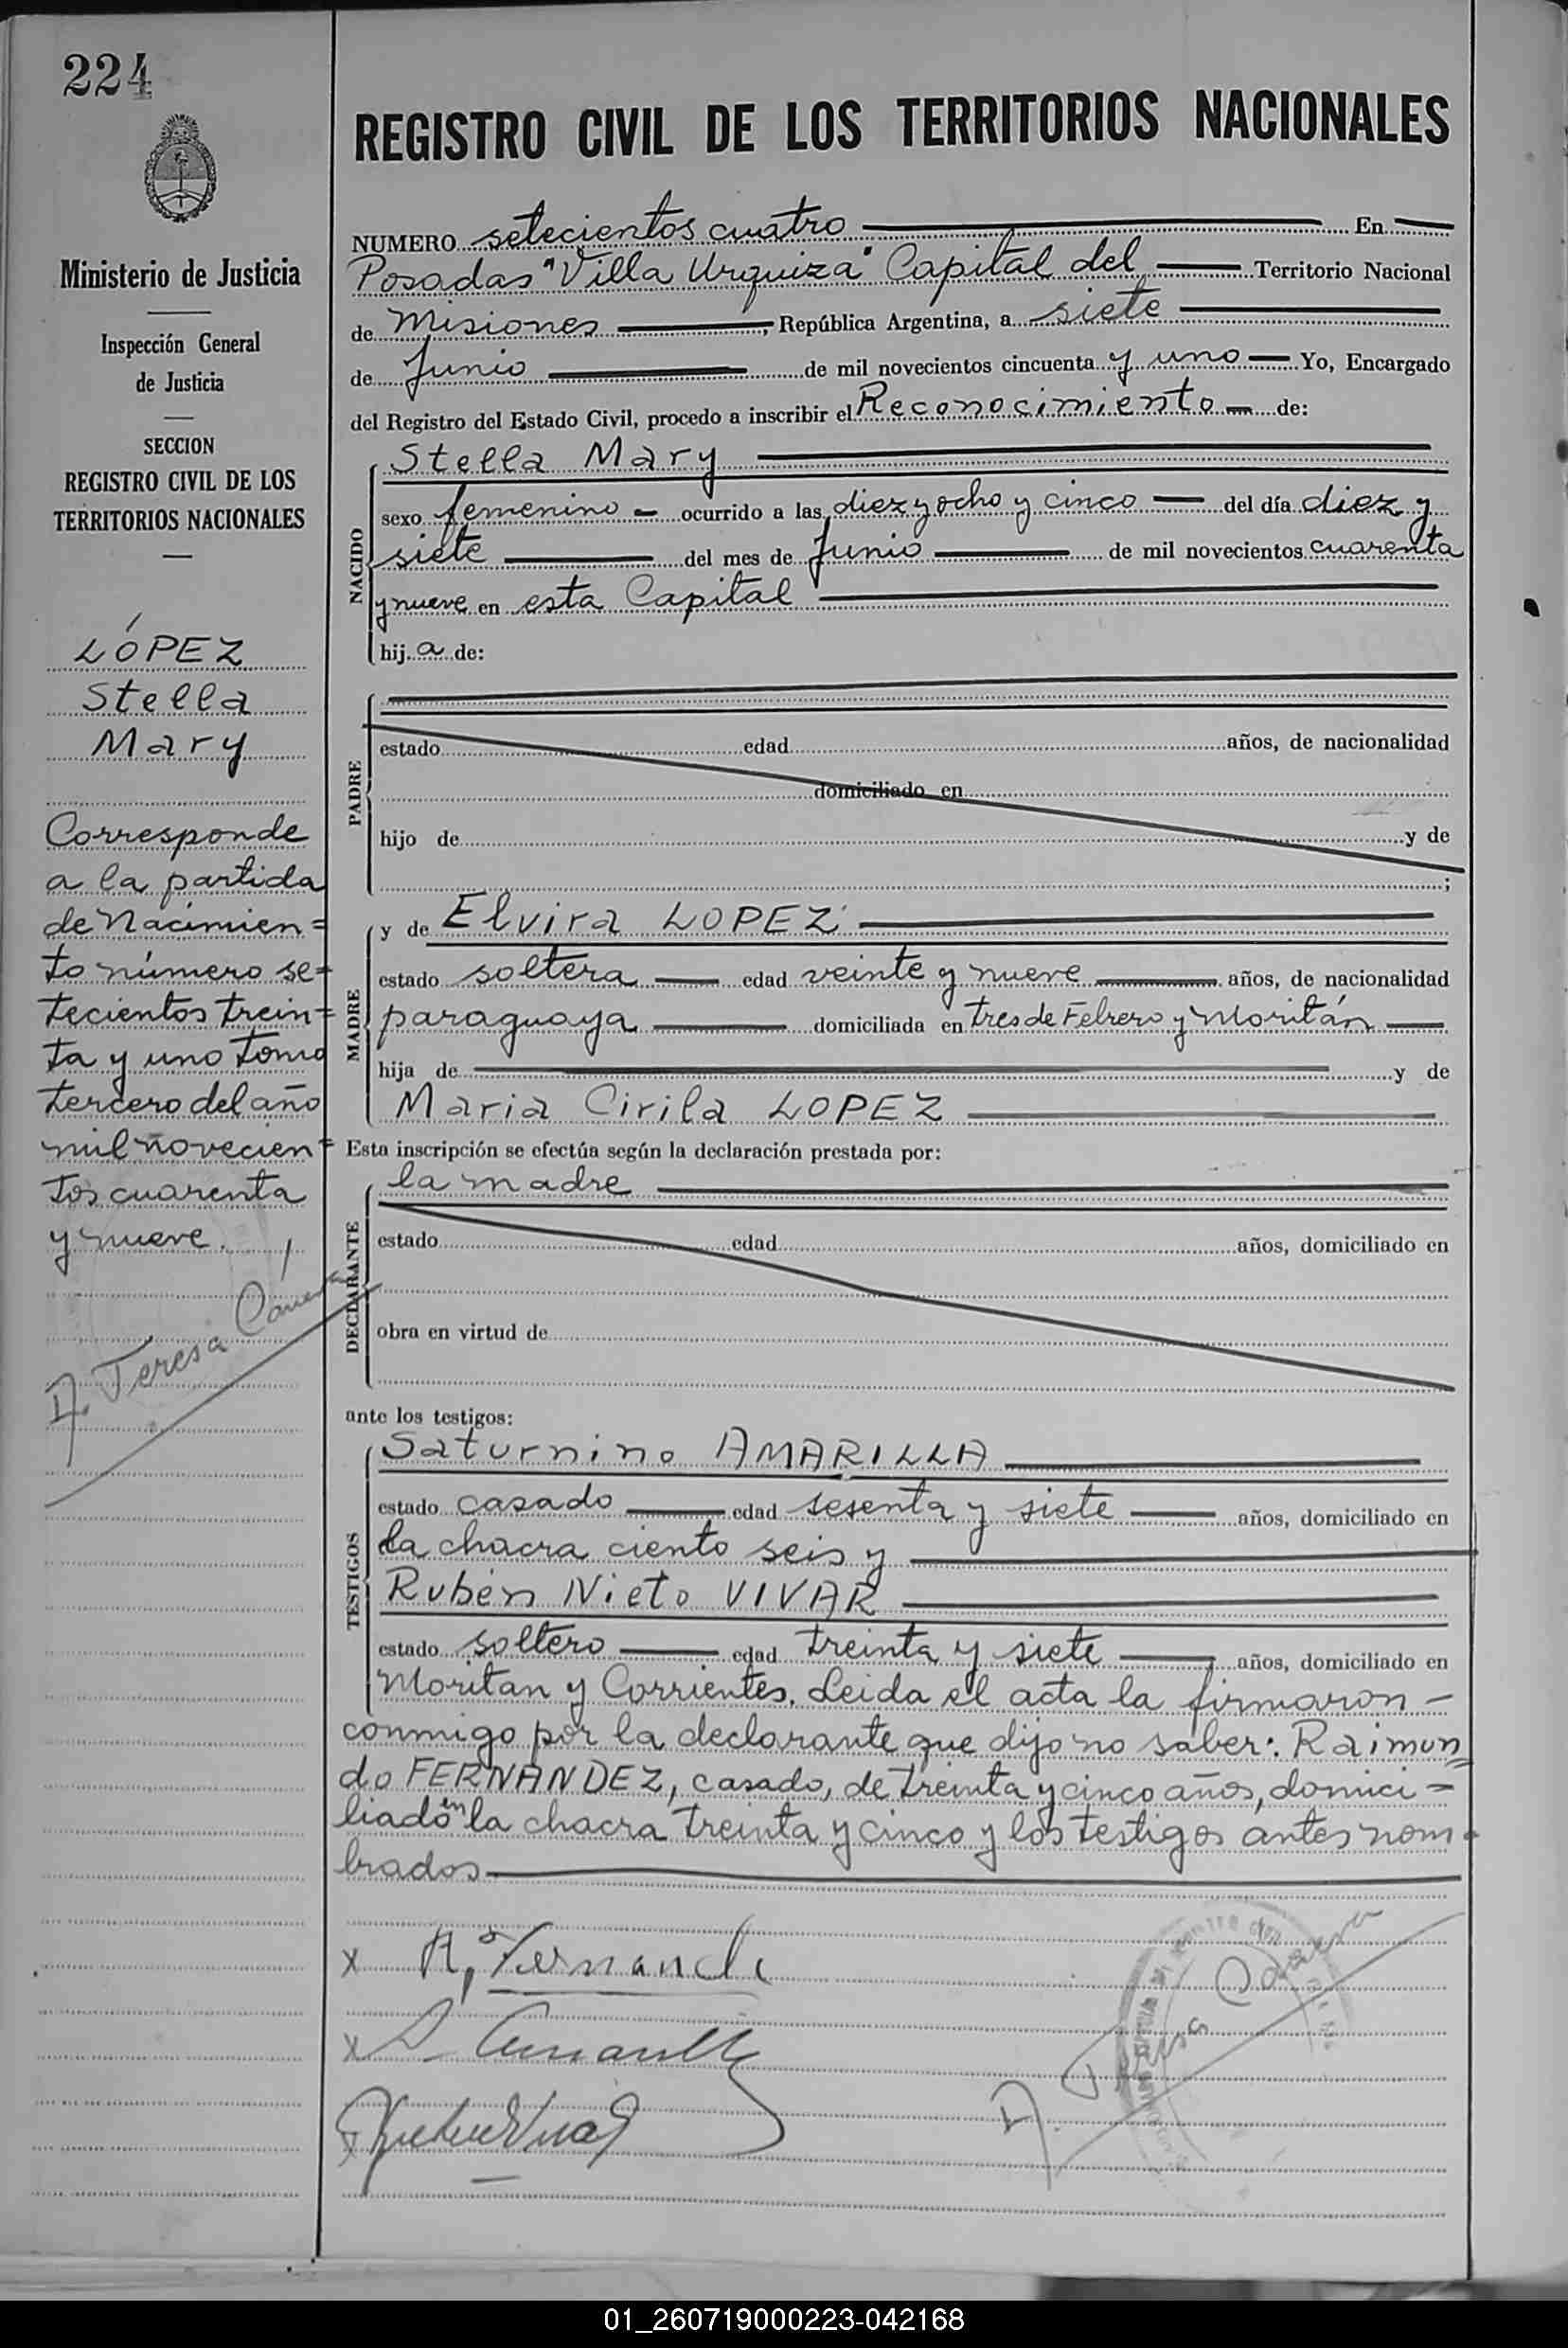 224
Ministerio de Justicia
Inspección General
de Justicia
SECCION
REGISTRO CIVIL DE LOS
TERRITORIOS NACIONALES
LÓPEZ
Stella
Mary
Corresponde
a la partida
de Nacimien=
to número se=
tecientos trein=
ta y uno Tomo
tercero del año
mil novecien=
tos cuarenta
y nueve.
A. Teresa
REGISTRO CIVIL DE LOS TERRITORIOS NACIONALES
NUMERO setecientos cuatro En
Posadas "Villa Urquiza" Capital del Territorio Nacional
de Misiones, República Argentina, a siete
de Junio de mil novecientos cincuenta y uno Yo, Encargado
del Registro del Estado Civil, procedo a inscribir el Reconocimiento de:
NACIDO
Stella Mary
sexo femenino ocurrido a las diez y ocho y cinco del día diez y
siete del mes de Junio de mil novecientos cuarenta
y nueve en esta Capital
hij a de:
PADRE
estado edad años, de nacionalidad
domiciliado en
hijo de y de
;
MADRE
y de Elvira LOPEZ
estado soltera edad veinte y nueve años, de nacionalidad
paraguaya domiciliada en tres de Febrero y Moritán
hija de y de
Maria Cirila LOPEZ
Esta inscripción se efectúa según la declaración prestada por:
DECLARANTE
la madre
estado edad años, domiciliado en
obra en virtud de
ante los testigos:
TESTIGOS
Saturnino AMARILLA
estado casado edad sesenta y siete años, domiciliado en
la chacra ciento seis y
Rubén Nieto VIVAR
estado soltero edad treinta y siete años, domiciliado en
Moritan y Corrientes. Leida el acta la firmaron
conmigo por la declarante que dijo no saber: Raimun=
do FERNANDEZ, casado, de treinta y cinco años, domici=
liado en la chacra treinta y cinco y los testigos antes nom=
brados
x R, Fernande
x
x
A. Teresa
01_260719000223-042168